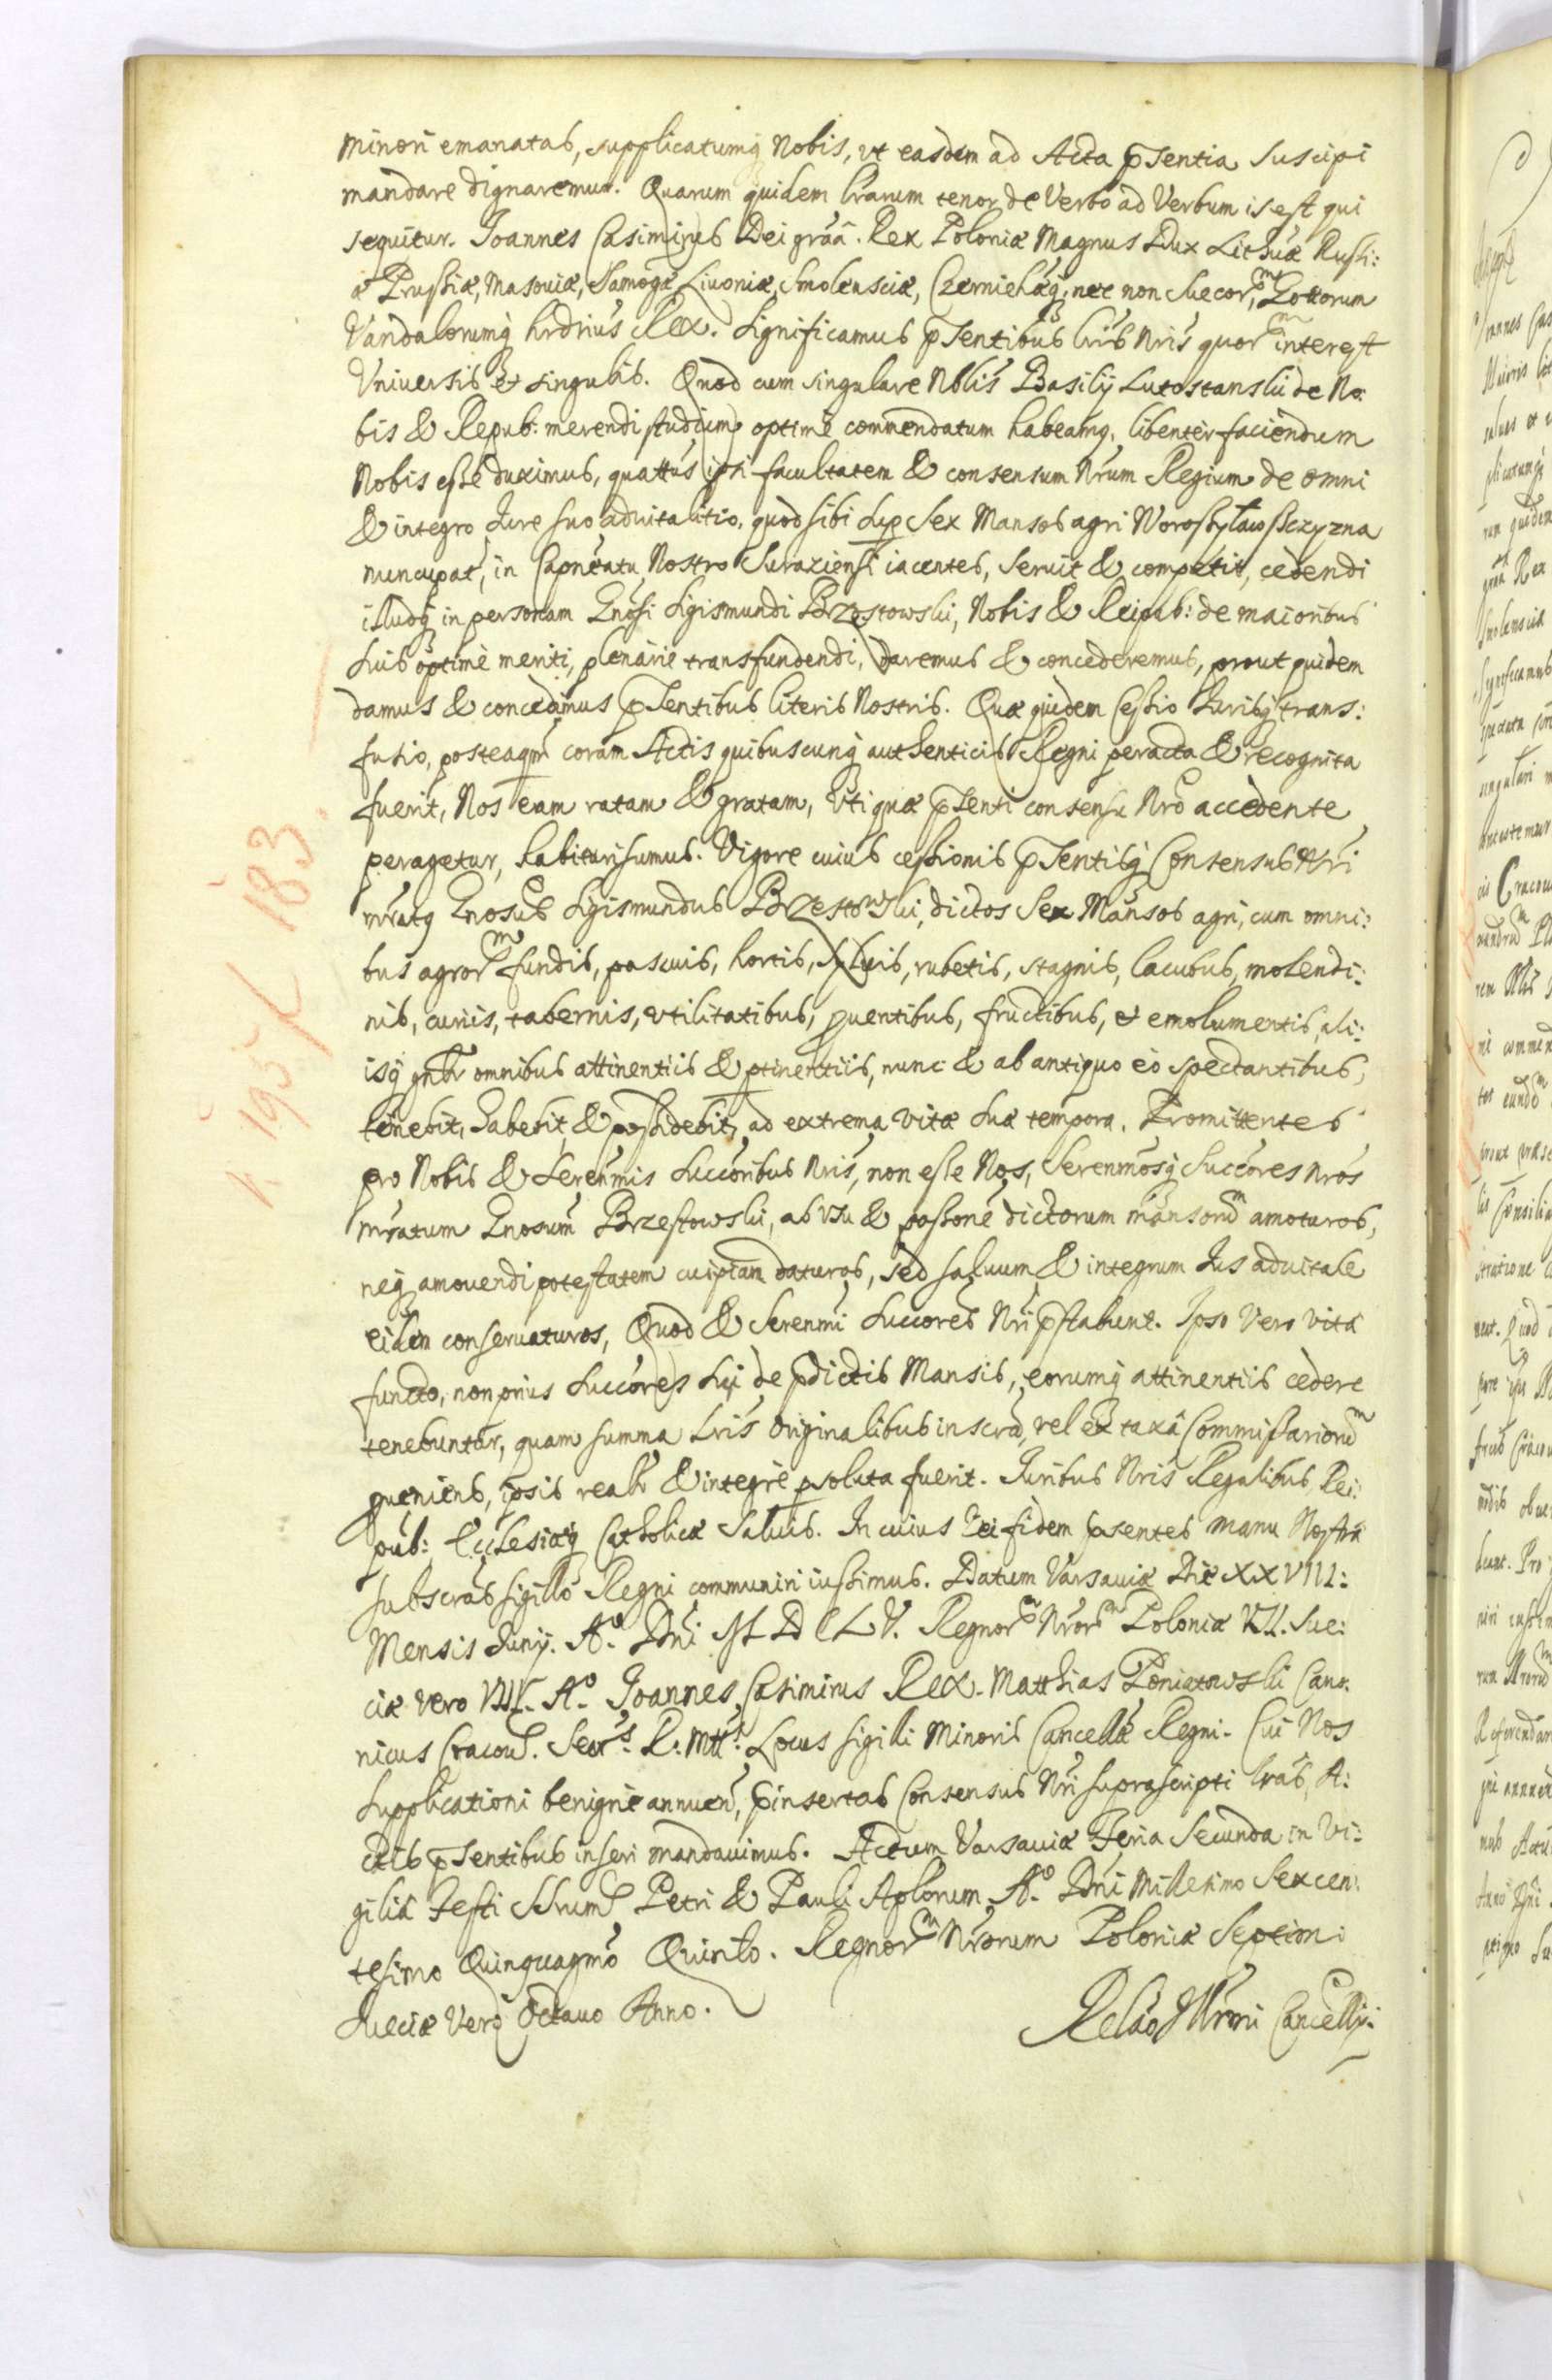 minori emanatas, supplicatumq Nobis, vt easdem ad Acta pñsentia suscipi
mandare dignaremur. Quarum quidem lrarum tenor de Verbo ad Verbum is est qui
sequitur. Joannes Casimirus Dei gráá. Rex Poloniæ Magnus Dux Lithuæ Russi:
æ Prussiæ, Masouiæ, Samogæ, Liuoniæ, Smolensciæ, Czerniehæq, nec non Suecorm, Gottorum
Vandalorumq hrdrius Rex. Significamus pñsentibus lris Nris quorm interest
Vniuersis et singulis. Quod cum singulare Nblis Basilij Lutostanski de No:
bis & Repub: merendi studium optimè commendatum habeamq, libenter faciendum
Nobis esse duximus, quattus ipsi facultatem & consensum Nrum Regium de omni
& integro Jure suo aduitalitio, quod sibi sup Sex Mansos agri Woroszyłowszczyzna
nuncupat, in Capneatu Nostro Suraziensi iacentes, seruit & competit, cedendi
illudq in personam Gnosi Sigismundi Brzostowski, Nobis & Reipub: de maioribus
suis optimè meriti, plenariè transfundendi, daremus & concederemus, prout quidem
damus & concedimus pñsentibus literis Nostris. Quæ quidem Cessio Jurisq trans:
fusio, posteaqm coram Actis quibuscunq authenticis Regni peracta & recognita
fuerit, Nos eam ratam & gratam, vti quæ pñsenti consensu Nro accedente
peragetur, habituri sumus. Vigore cuius cessionis pñsentisq Consensus Nri
mratq Gnosus Sigismundus Brzestowski, dictos Sex Mansos agri, cum omni:
bus agrorm fundis, pascuis, hortis, syluis, rubetis, stagnis, lacubus, molendi:
nis, curiis, tabernis, vtilitatibus, prouentibus, fructibus, et emolumentis, ali:
isq gnlr omnibus attinentiis & ptinentiis, nunc & ab antiquo eò spectantibus,
tenebit, habebit, & possidebit, ad extrema vitæ suæ tempora. Promittentes
pro Nobis & Serenmis Succoribus Nris, non esse Nos, Serenmosq Succores Nros
mratum Gnosum Brzestowski, ab vsu & possone dictorum mansorum amoturos,
neq amouendi potestatem cuipiam daturos, sed saluum & integrum Jus aduitale
eidem conseruaturos, Quod & Serenmi Succores Nri pstabunt. Ipso Vero vitâ
functo, non prius Succores sui de pdictis Mansis, eorumq attinentiis cedere
tenebuntur, quam summa Lris Originalibus inscra, vel ex taxâ Commissariorum
proueniens, ipsis realr & integrè psoluta fuerit. Juribus Nris Regalibus, Rei:
pub: Ecclesiæq Catholicæ saluis. In cuius rei fidem psentes manu Nostrâ
subscras sigillo Regni communiri iussimus. Datum Varsauiæ Die XXVIII:
Mensis Junij. Ao. Dni MDCLV. Regnorm Nrorm Poloniæ VII. Sue:
ciæ vero VIII. Ao. Joannes Casimirus Rex. Matthias Poniatowski Cano:
nicus Cracou. Secrs. R. Mtts. Locus sigilli Minoris Cancellæ Regni. Cui Nos
Supplicationi benignè annuen, pinsertas Consensus Nri suprascripti lras, A:
ctis pñsentibus inseri mandauimus. Actum Varsauiæ Feria Secunda in Vi:
giliâ Festi SSrum Petri & Pauli Aplorum. Ao. Dni Millesimo Sexcen:
tesimo Quinquagmo Quinto. Regnorm Nrorum Poloniæ Septimi
Sueciæ Vero Octauo Anno.
Relao Cancellij.
K. 195 K 183.